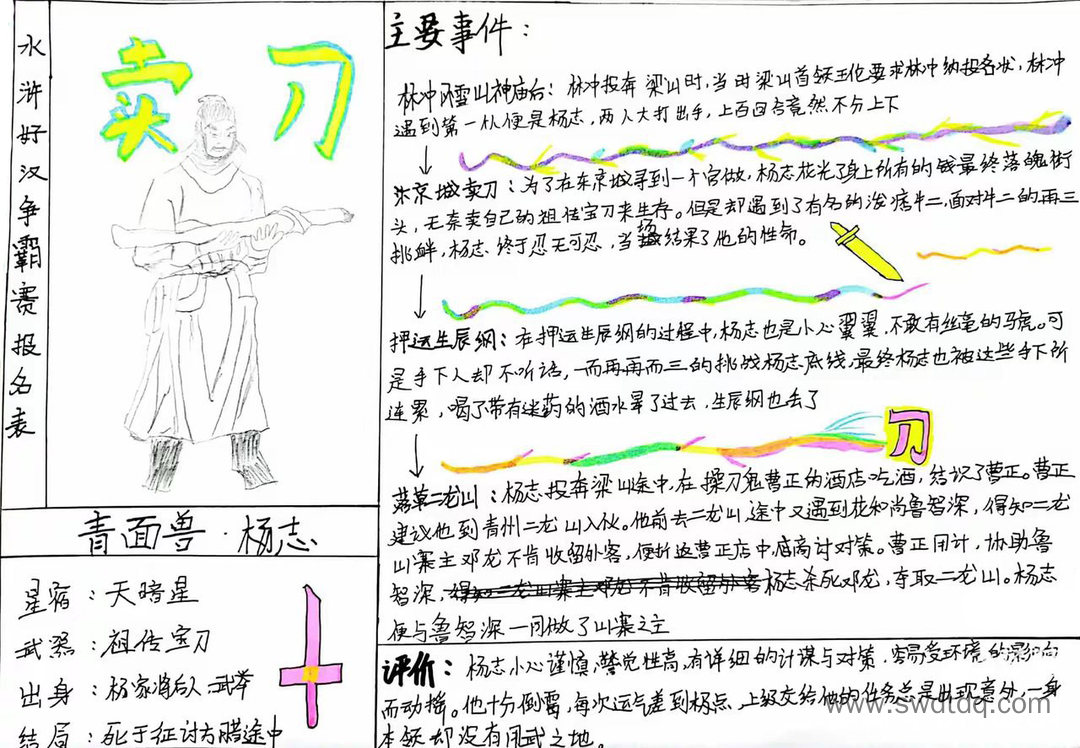 水浒好汉争霸赛报名表
卖刀
青面兽·杨志
星宿：天暗星
武器：祖传宝刀
出身：杨家将后人，武举
结局：死于征讨方腊途中
主要事件：
林冲风雪山神庙后：林冲投奔梁山时，当时梁山首领王伦要求林冲纳投名状，林冲
遇到第一人便是杨志，两人大打出手，上百回合竟然不分上下
东京城卖刀：为了在东京城寻到一个官做，杨志花光了身上所有的钱最终落魄街
头，无奈卖自己的祖传宝刀来生存。但是却遇到了有名的泼痞牛二，面对牛二的再三
挑衅，杨志终于忍无可忍，当场结果了他的性命。
押运生辰纲：在押运生辰纲的过程中，杨志也是小心翼翼，不敢有丝毫的马虎。可
是手下人却不听话，一而再再而三的挑战杨志底线，最终杨志也被这些手下所
连累，喝了带有迷药的酒水晕了过去，生辰纲也丢了
刀
落草二龙山：杨志投奔梁山途中，在操刀鬼曹正的酒店吃酒，结识了曹正。曹正
建议他到青州二龙山入伙。他前去二龙山，途中又遇到花和尚鲁智深，得知二龙
山寨主邓龙不肯收留外客，便折返曹正店中商讨对策。曹正用计，协助鲁
智深、杨志杀死邓龙，夺取二龙山。杨志
便与鲁智深一同做了山寨之主
评价：杨志小心谨慎，警觉性高，有详细的计谋与对策，容易受环境的影响
而动摇。他十分倒霉，每次运气差到极点，上级交给他的任务总是出现意外，一身
本领却没有用武之地。
www.swdtdq.com